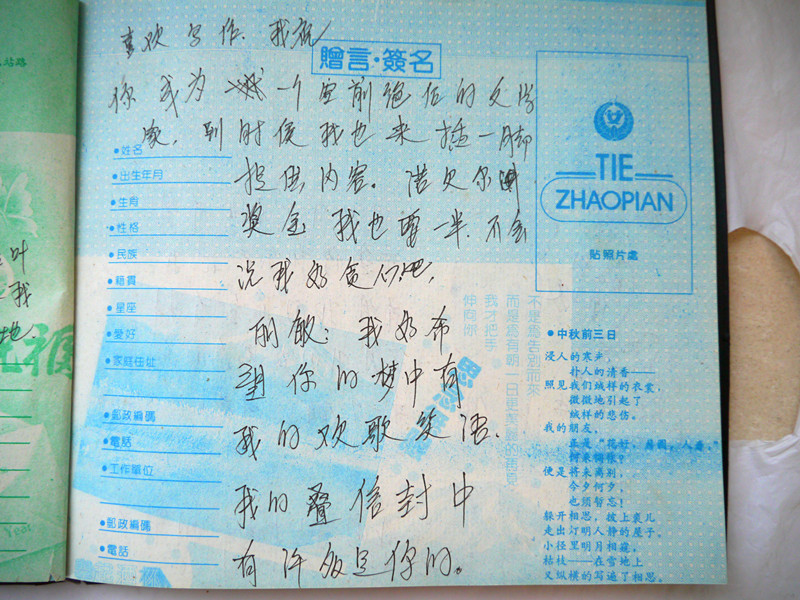 喜欢写作.我祝
贈言·簽名
你 我为 一个空前绝后的文学
家，到时侯我也来插一脚
提供内容。诺贝尔
奖金我也要一半.不会
说我好贪心吧,
丽敏：我好希
望你的梦中有
我的欢歌笑语.
我的叠信封中
有许多是你的。
•姓名
•出生年月
•生肖
•性格
•民族
•籍貫
•星座
•愛好
•家庭住址
•郵政編碼
•電話
•工作單位
•郵政編碼
•電話
TIE
ZHAOPIAN
貼照片處
不是爲告別而來
而是爲有朝一日
我才把手
伸向你
•中秋前三日
浸人的寒步，
扑人的清香——
照见我们绒样的衣裳，
微微地引起了
绒样的悲伤。
我的朋友，
正是“花好，月圆，人寿，”
何来惆怅？
便是将来离别，
今夕何夕，
也须暂忘！
躲开相思，披上裘儿
走出灯明人静的屋子。
小径里明月相窥，
枯枝——在雪地上
又纵横的写遍了相思。
叶
我
地